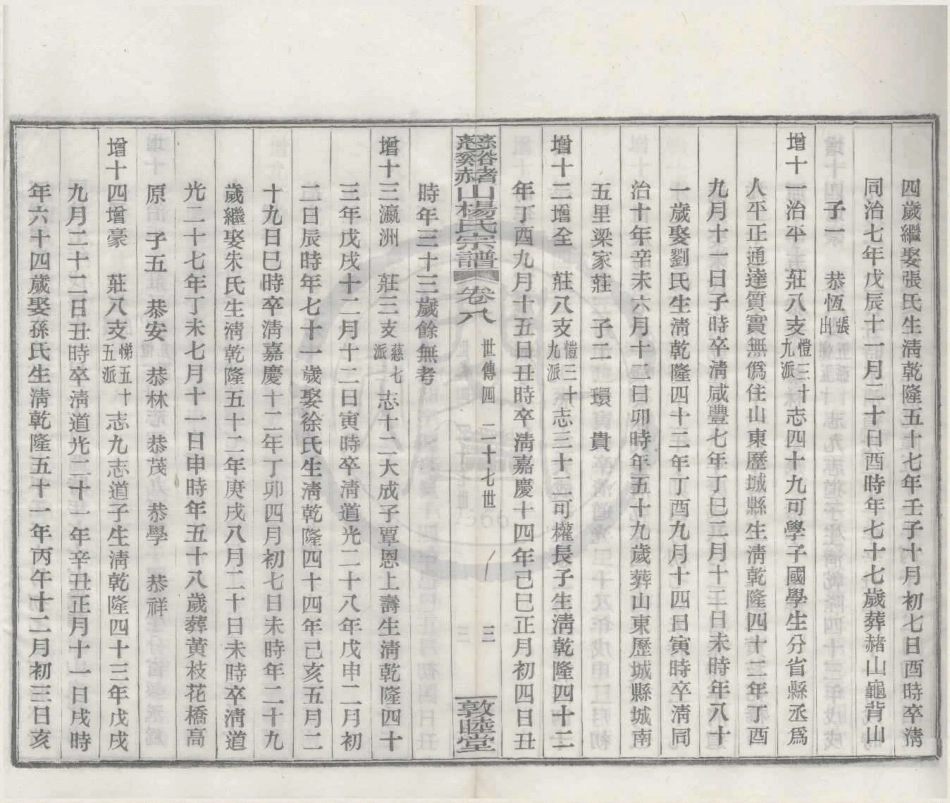 四歲繼娶張氏生淸乾隆五十七年壬子十月初七日酉時卒淸
同治七年戊辰十一月二十日酉時年七十七歲葬赭山龜背山
子一　恭恆張出
增十一治平　莊八支愷三十九派志四十九可學子國學生分省縣丞爲
人平正通達質實無僞住山東歷城縣生淸乾隆四十二年丁酉
九月十一日子時卒淸咸豐七年丁巳二月十三日未時年八十
一歲娶劉氏生淸乾隆四十二年丁酉九月十四日寅時卒淸同
治十年辛未六月十三日卯時年五十九歲葬山東歷城縣城南
五里梁家莊　子二　環　貴
增十二增全　莊八支愷三十九派志三十二可權長子生淸乾隆四十二
年丁酉九月十五日丑時卒淸嘉慶十四年己巳正月初四日丑
慈谿赭山楊氏宗譜　卷八　世傳四　二十七世　三　敦睦堂
時年三十三歲餘無考
增十三瀛洲　莊三支慈七派志十二大成子覃恩上壽生淸乾隆四十
三年戊戌十二月十二日寅時卒淸道光二十八年戊申二月初
二日辰時年七十一歲娶徐氏生淸乾隆四十四年己亥五月二
十九日巳時卒淸嘉慶十二年丁卯四月初七日未時年二十九
歲繼娶朱氏生淸乾隆五十二年庚戌八月二十日未時卒淸道
光二十七年丁未七月十一日申時年五十八歲葬黃枝花橋高
原　子五　恭安　恭林　恭茂　恭學　恭祥
增十四增豪　莊八支悌五十五派志九志道子生淸乾隆四十三年戊戌
九月二十二日丑時卒淸道光二十一年辛丑正月十一日戌時
年六十四歲娶孫氏生淸乾隆五十一年丙午十二月初三日亥